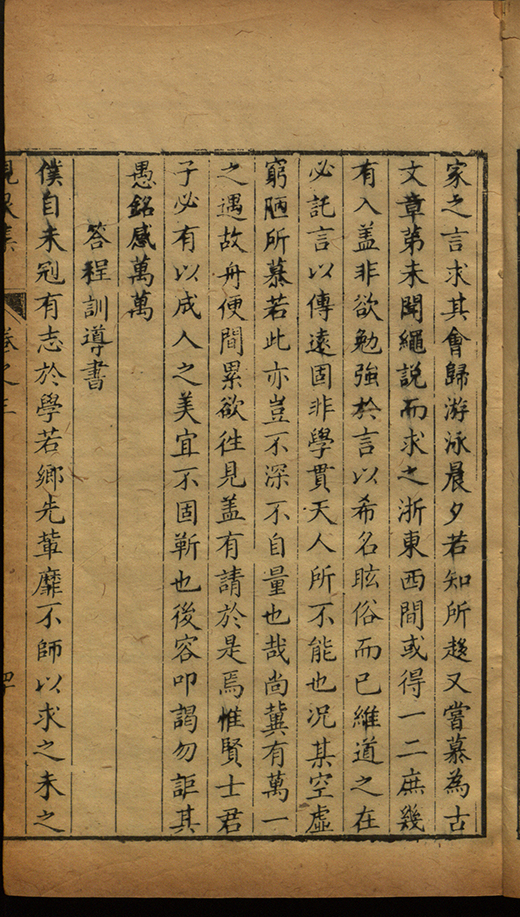 家之言求其會歸游泳晨夕若知所趍又嘗慕為古
文章第未聞繩説而求之浙東西間或得一二庶幾
有入盖非欲勉強於言以希名眩俗而已維道之在
必託言以傳遠固非學貫天人所不能也況某空虛
窮陋所慕若此亦豈不深不自量也哉尚冀有萬一
之遇故舟便間累欲徃見盖有請於是焉惟賢士君
子必有以成人之美宜不固靳也後容叩謁勿詎其
愚銘感萬萬
答程訓導書
僕自未冠有志於學若鄉先輩靡不師以求之未之
卷之三